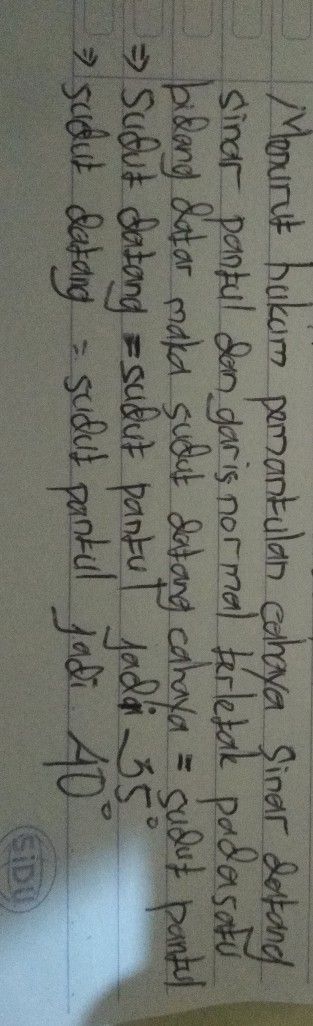 Menurut hukum pemantulan cahaya Sinar datang
Sinar pantul dan garis normal terletak pada satu
bidang datar maka sudut datang cahaya = sudut pantul
⇒ Sudut datang = sudut pantul jadi 35°
⇒ sudut datang = sudut pantul jadi 40°
SIDU